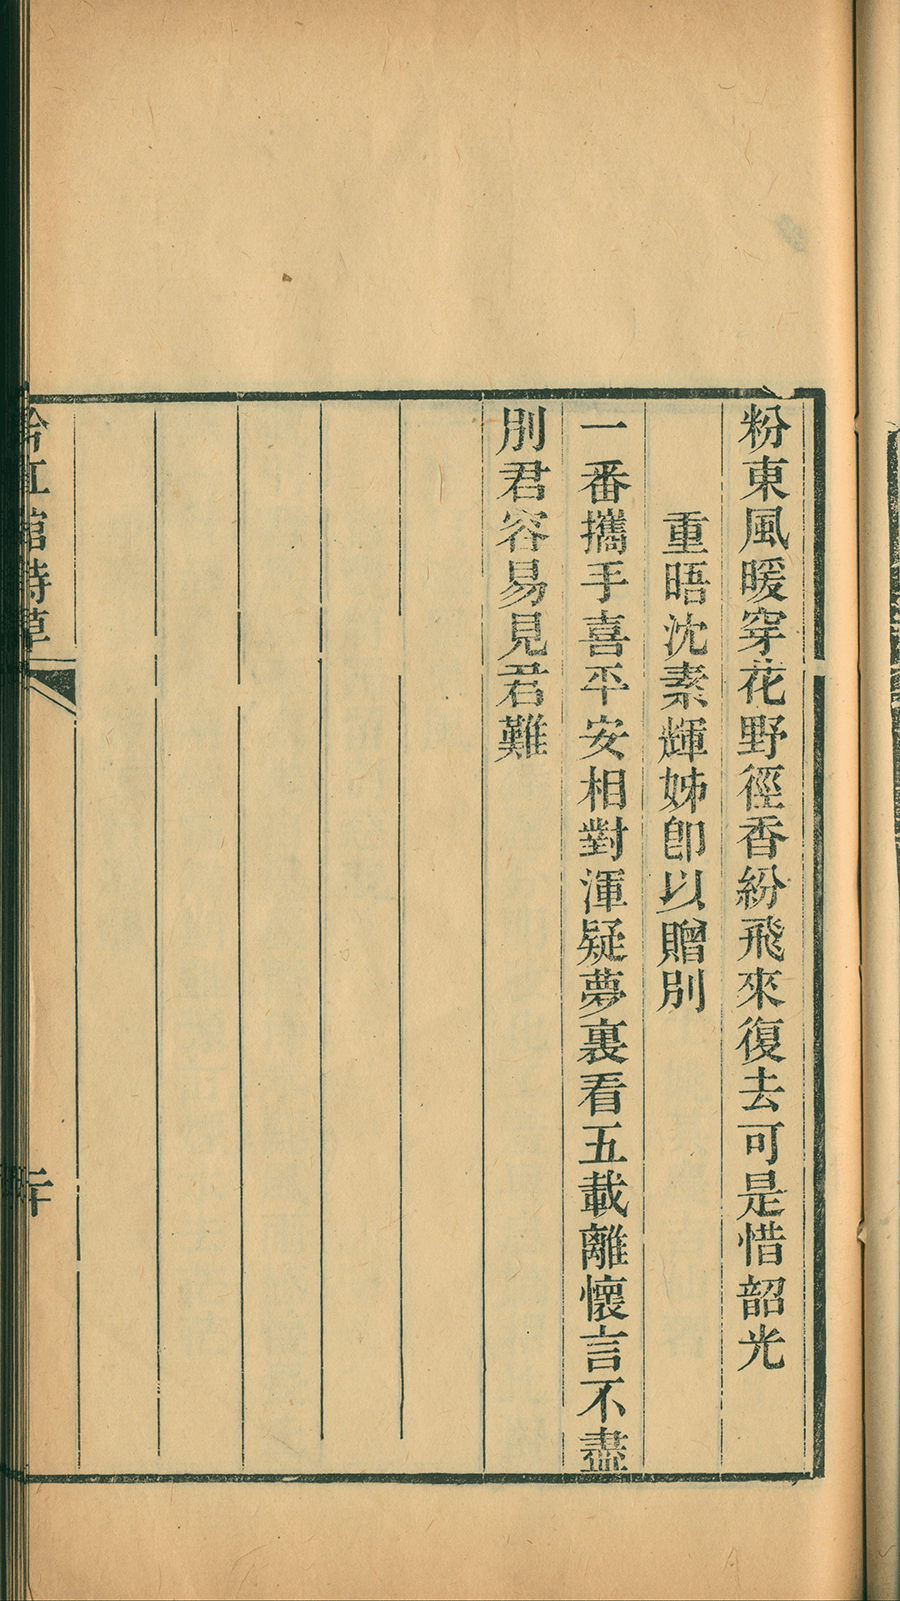 粉東風暖穿花野徑香紛飛來復去可是惜韶光
重晤沈素輝姊卽以贈別
一番攜手喜平安相對渾疑夢裏看五載離懷言不盡
別君容易見君難
紅館詩草